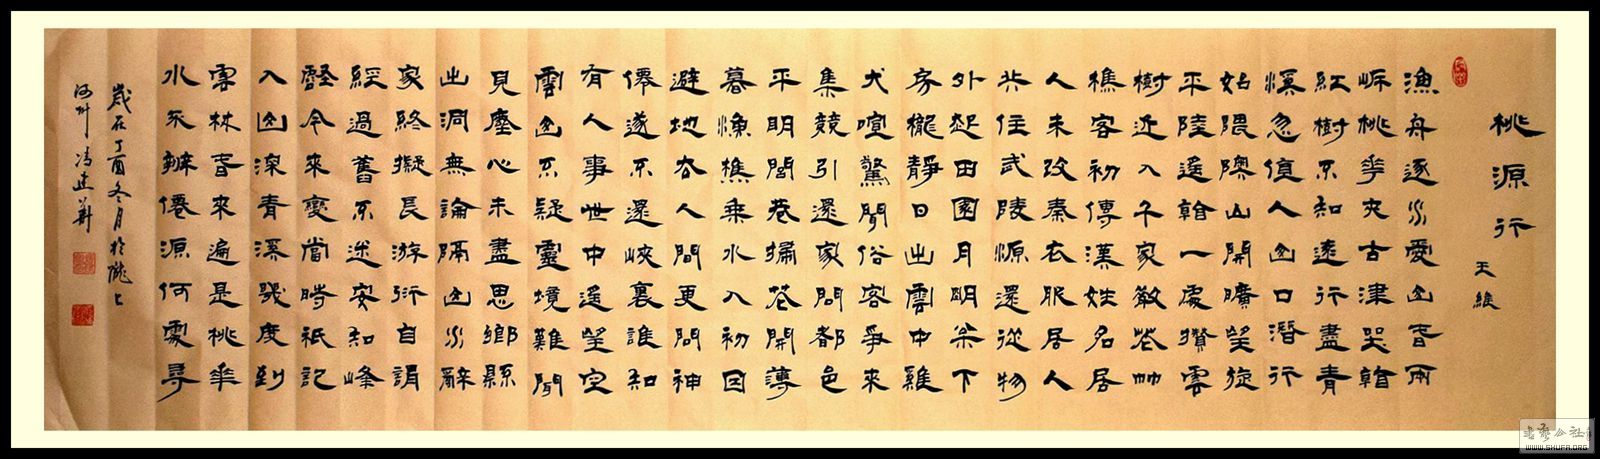 桃源行
王維
漁舟逐水愛山春兩
岍桃華夾古津坐看
紅樹不知遠行盡青
溪忽值人山口潛行
始隈隩山開曠望旋
平陸遙看一處攢雲
樹近入千家散花竹
樵客初傳漢姓名居
人未改秦衣服居人
共住武陵源還從物
外起田園月明松下
房櫳靜日出雲中雞
犬喧驚聞俗客爭來
集競引還家問都邑
平明閭巷掃花開薄
暮漁樵乘水入初因
避地去人間更問神
僊遂不還峽裏誰知
有人事世中遙望空
雲山不疑靈境難聞
見塵心未盡思鄉縣
出洞無論隔山水辭
家終擬長游衍自謂
經過舊不迷安知峰
壑今來變當時衹記
入山深青溪幾度到
雲林春來遍是桃華
水不辨僊源何處尋
歲在丁酉冬月於隴上
河州馮建華
書藝公社
WWW.SHUFA.ORG